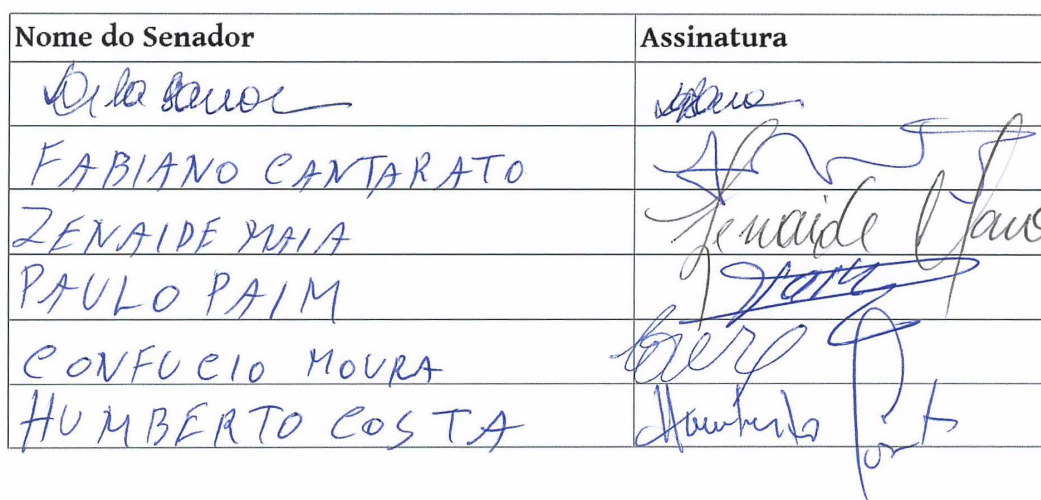 Nome do Senador Assinatura
FABIANO CANTARATO
ZENAIDE MAIA Zenaide Maia
PAULO PAIM Paim
CONFUCIO MOURA
HUMBERTO COSTA Humberto Costa